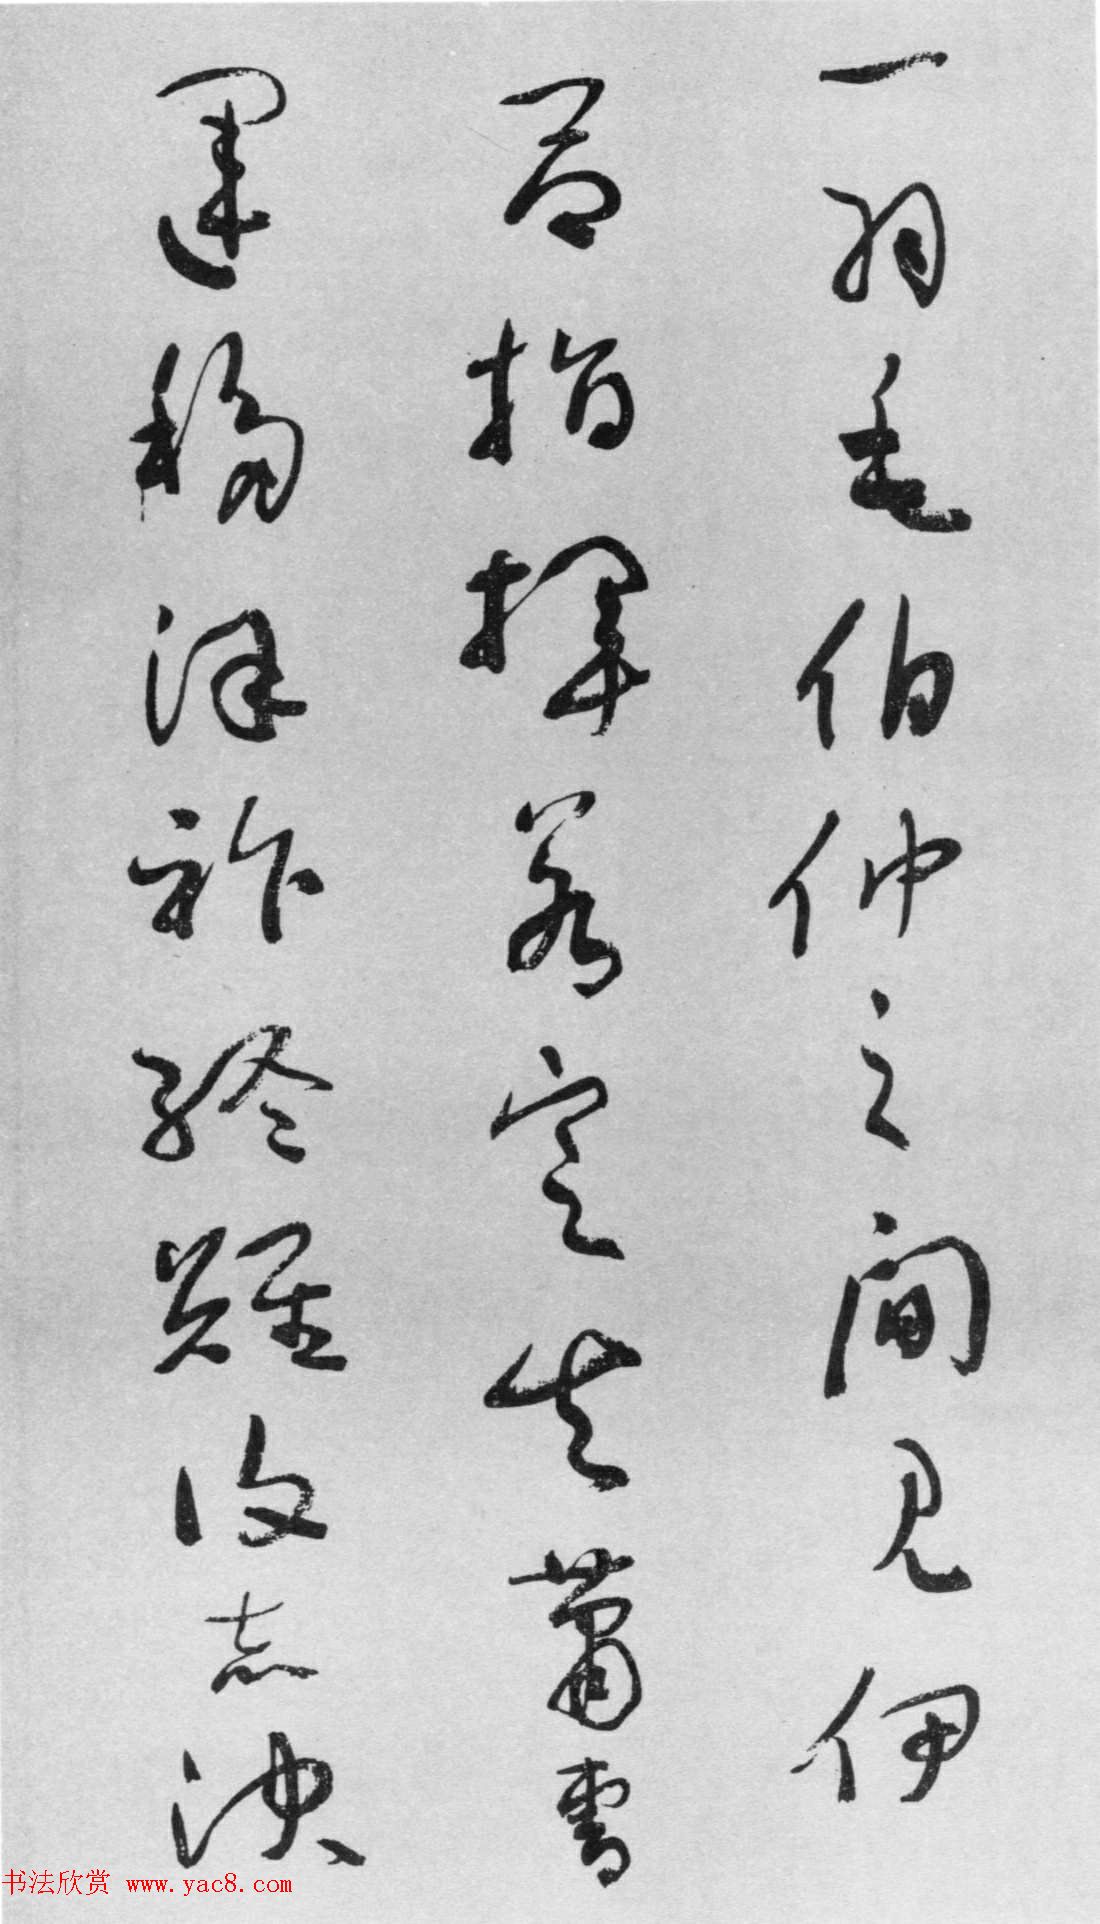 一羽毛伯仲之間見伊
呂指揮若定失蕭曹
運移漢祚終難復志決
书法欣赏 www.yac8.com